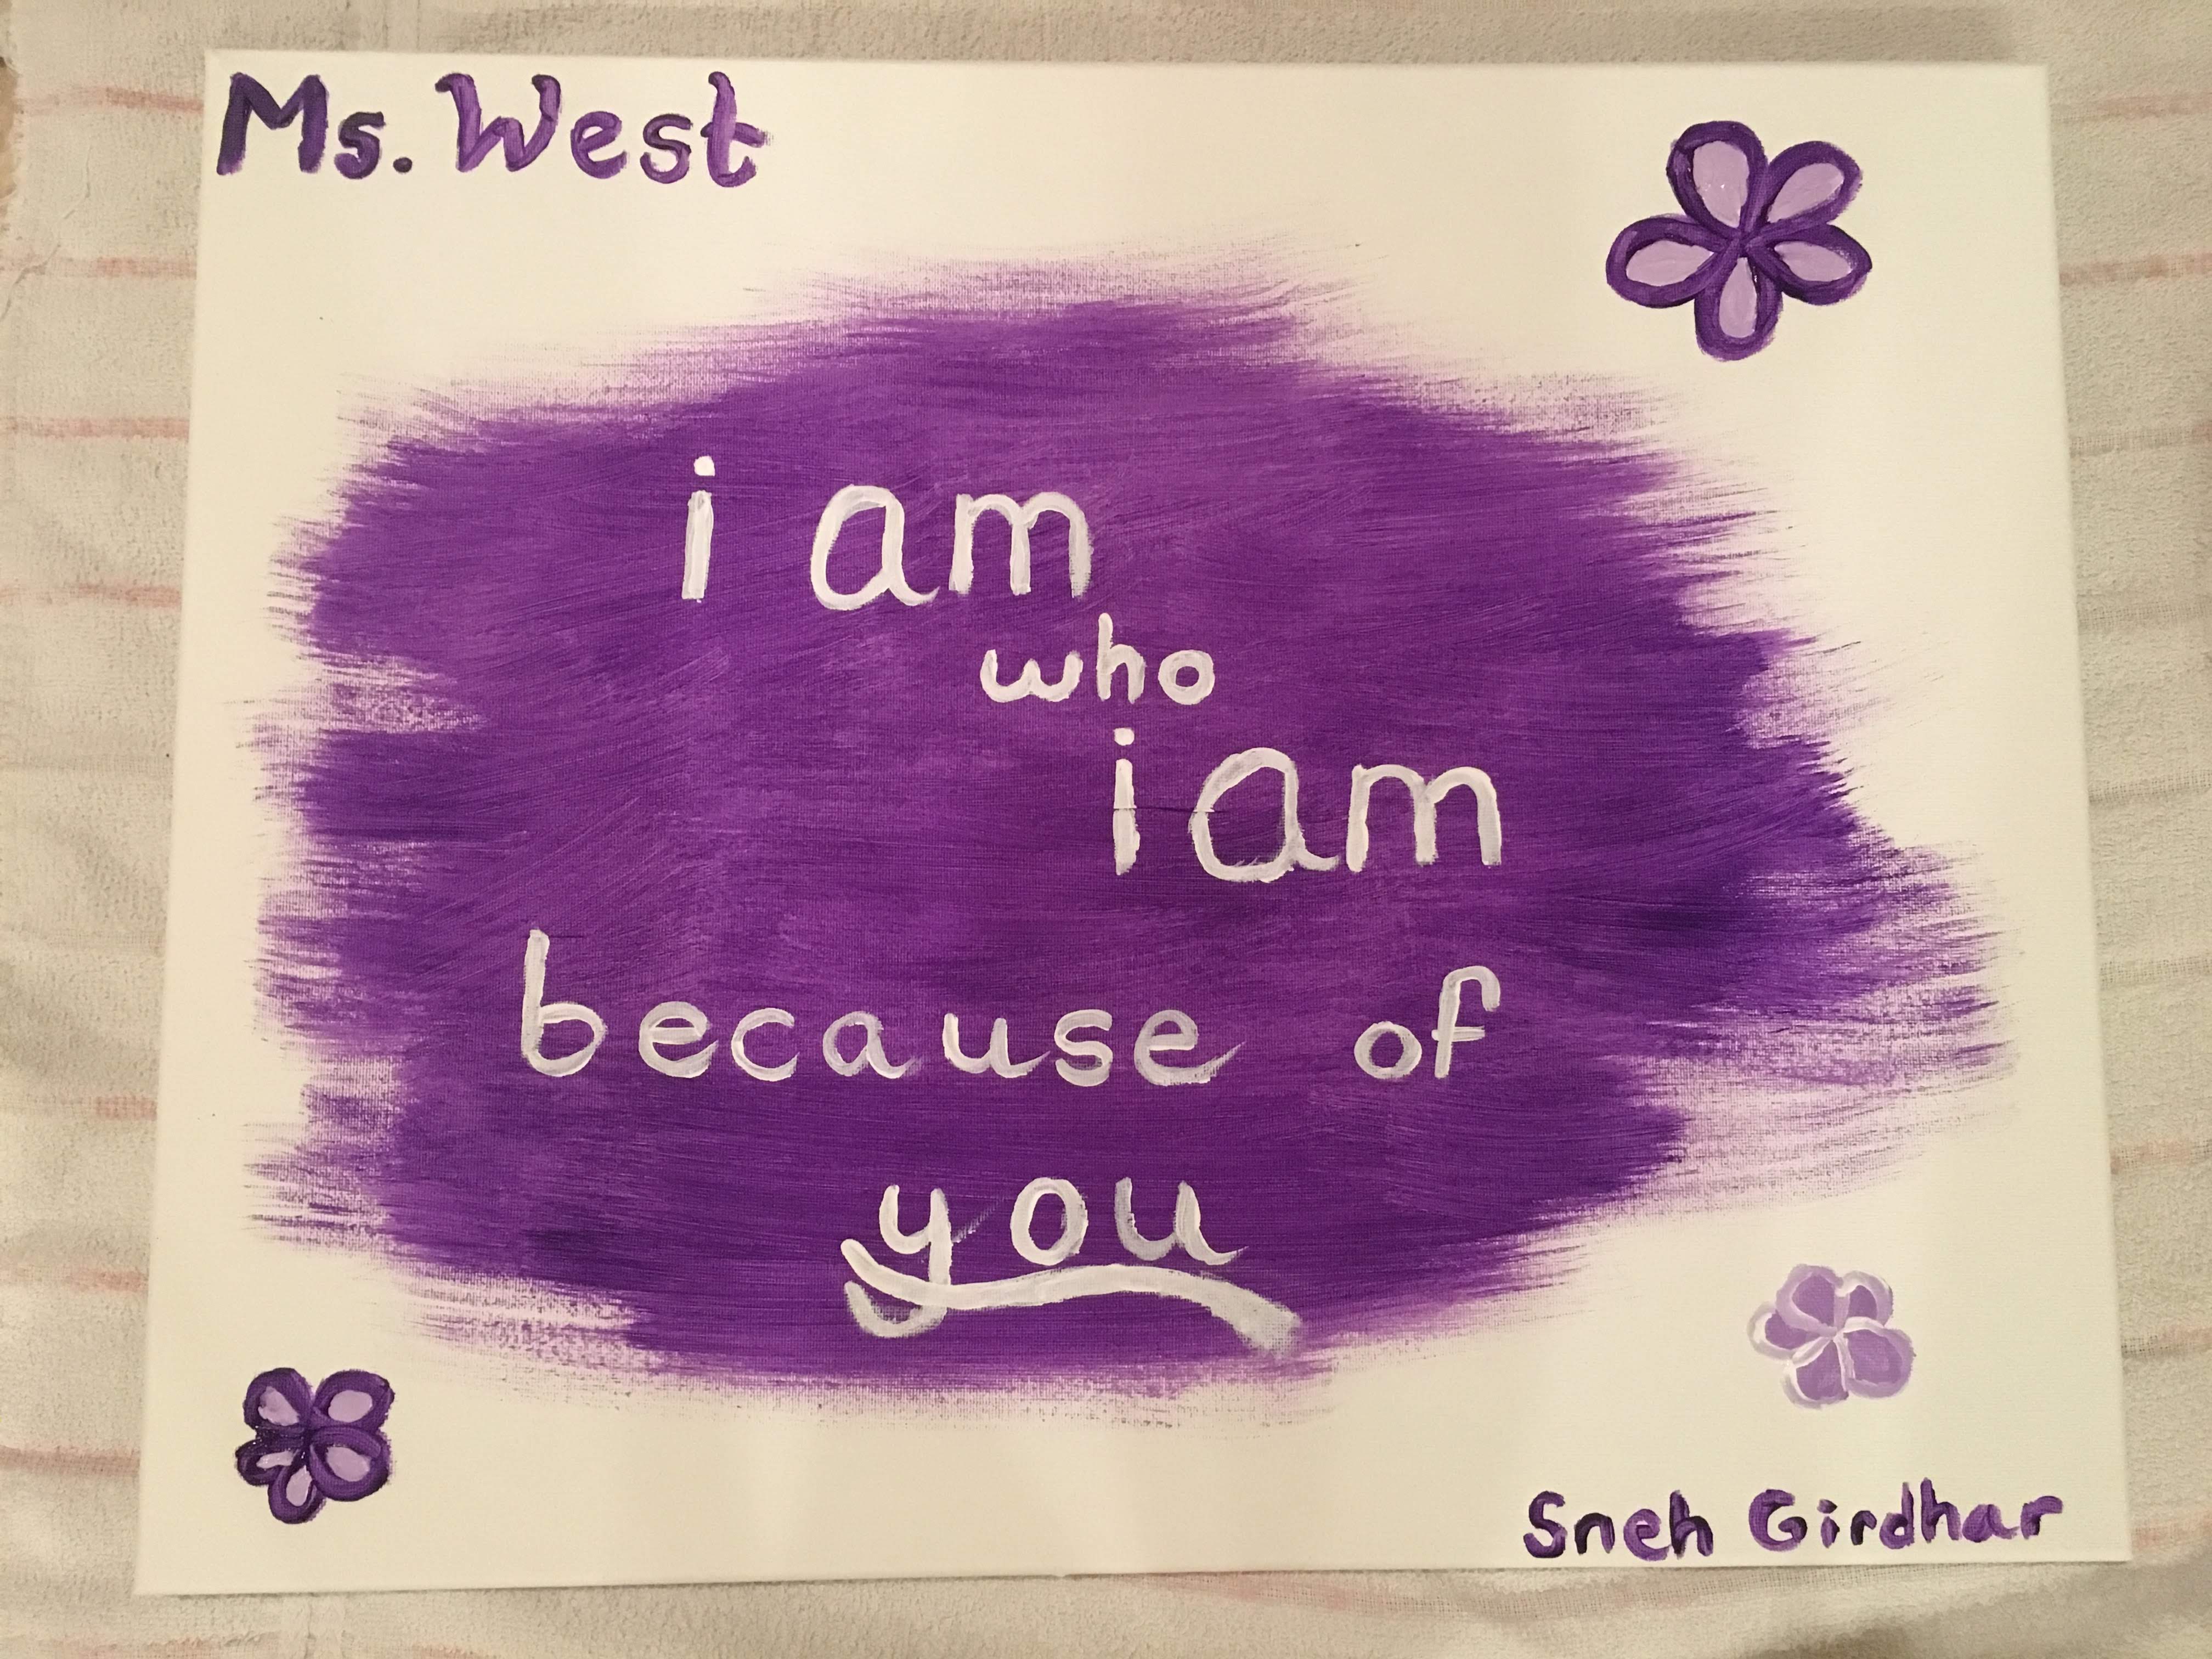 Ms. West
i am
who
i am
because of
you
Sneh Girdhar